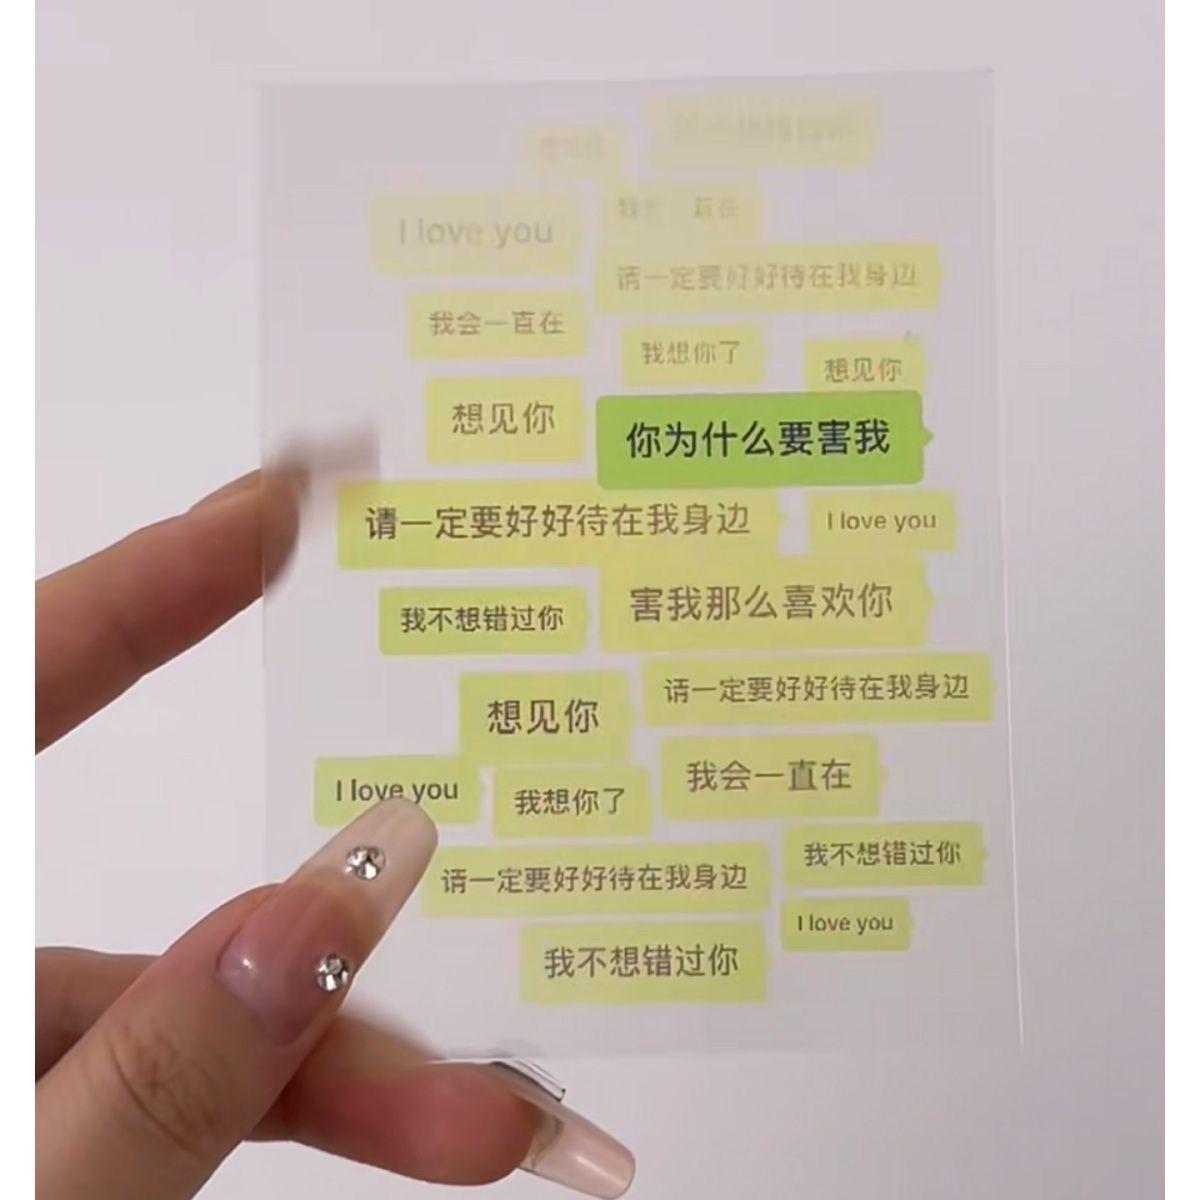 I love you
请一定要好好待在我身边
我会一直在
我想你了
想见你
想见你
你为什么要害我
请一定要好好待在我身边
I love you
我不想错过你
害我那么喜欢你
想见你
请一定要好好待在我身边
I love you
我想你了
我会一直在
请一定要好好待在我身边
我不想错过你
I love you
我不想错过你